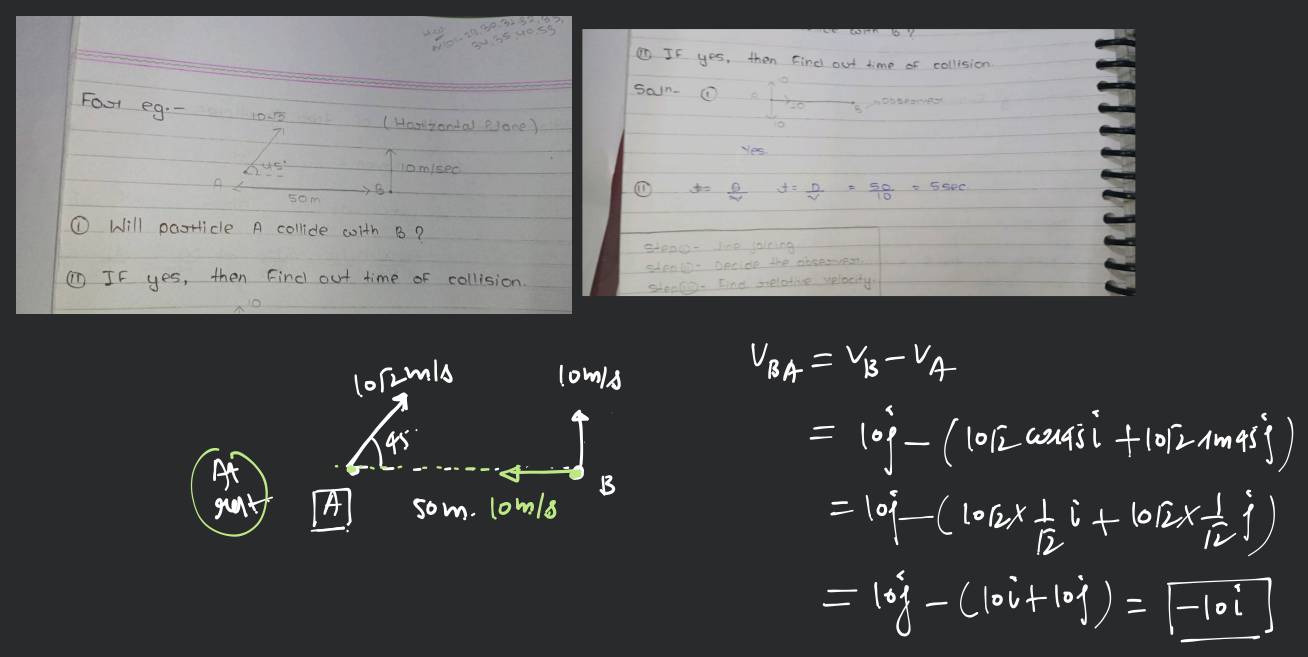 For eg:-
(Horizontal Plane)
45°
10m/sec
A
B
50m
① Will particle A collide with B ?
② IF yes, then Find out time of collision.
10
② IF yes, then Find out time of collision
Soln- ①
10
B
observer
10
Yes.
②
t= D/V = 50/10 = 5sec
Step①- line joining
Step②- Decide the observer
Step③- Find relative velocity.
10√2m/s
10m/s
45°
At
rest
A
50m. 10m/s
B
V_BA = V_B - V_A
= 10j - (10√2 cos45i + 10√2 sin45j)
= 10j - (10√2 × 1/√2 i + 10√2 × 1/√2 j)
= 10j - (10i + 10j) = -10i